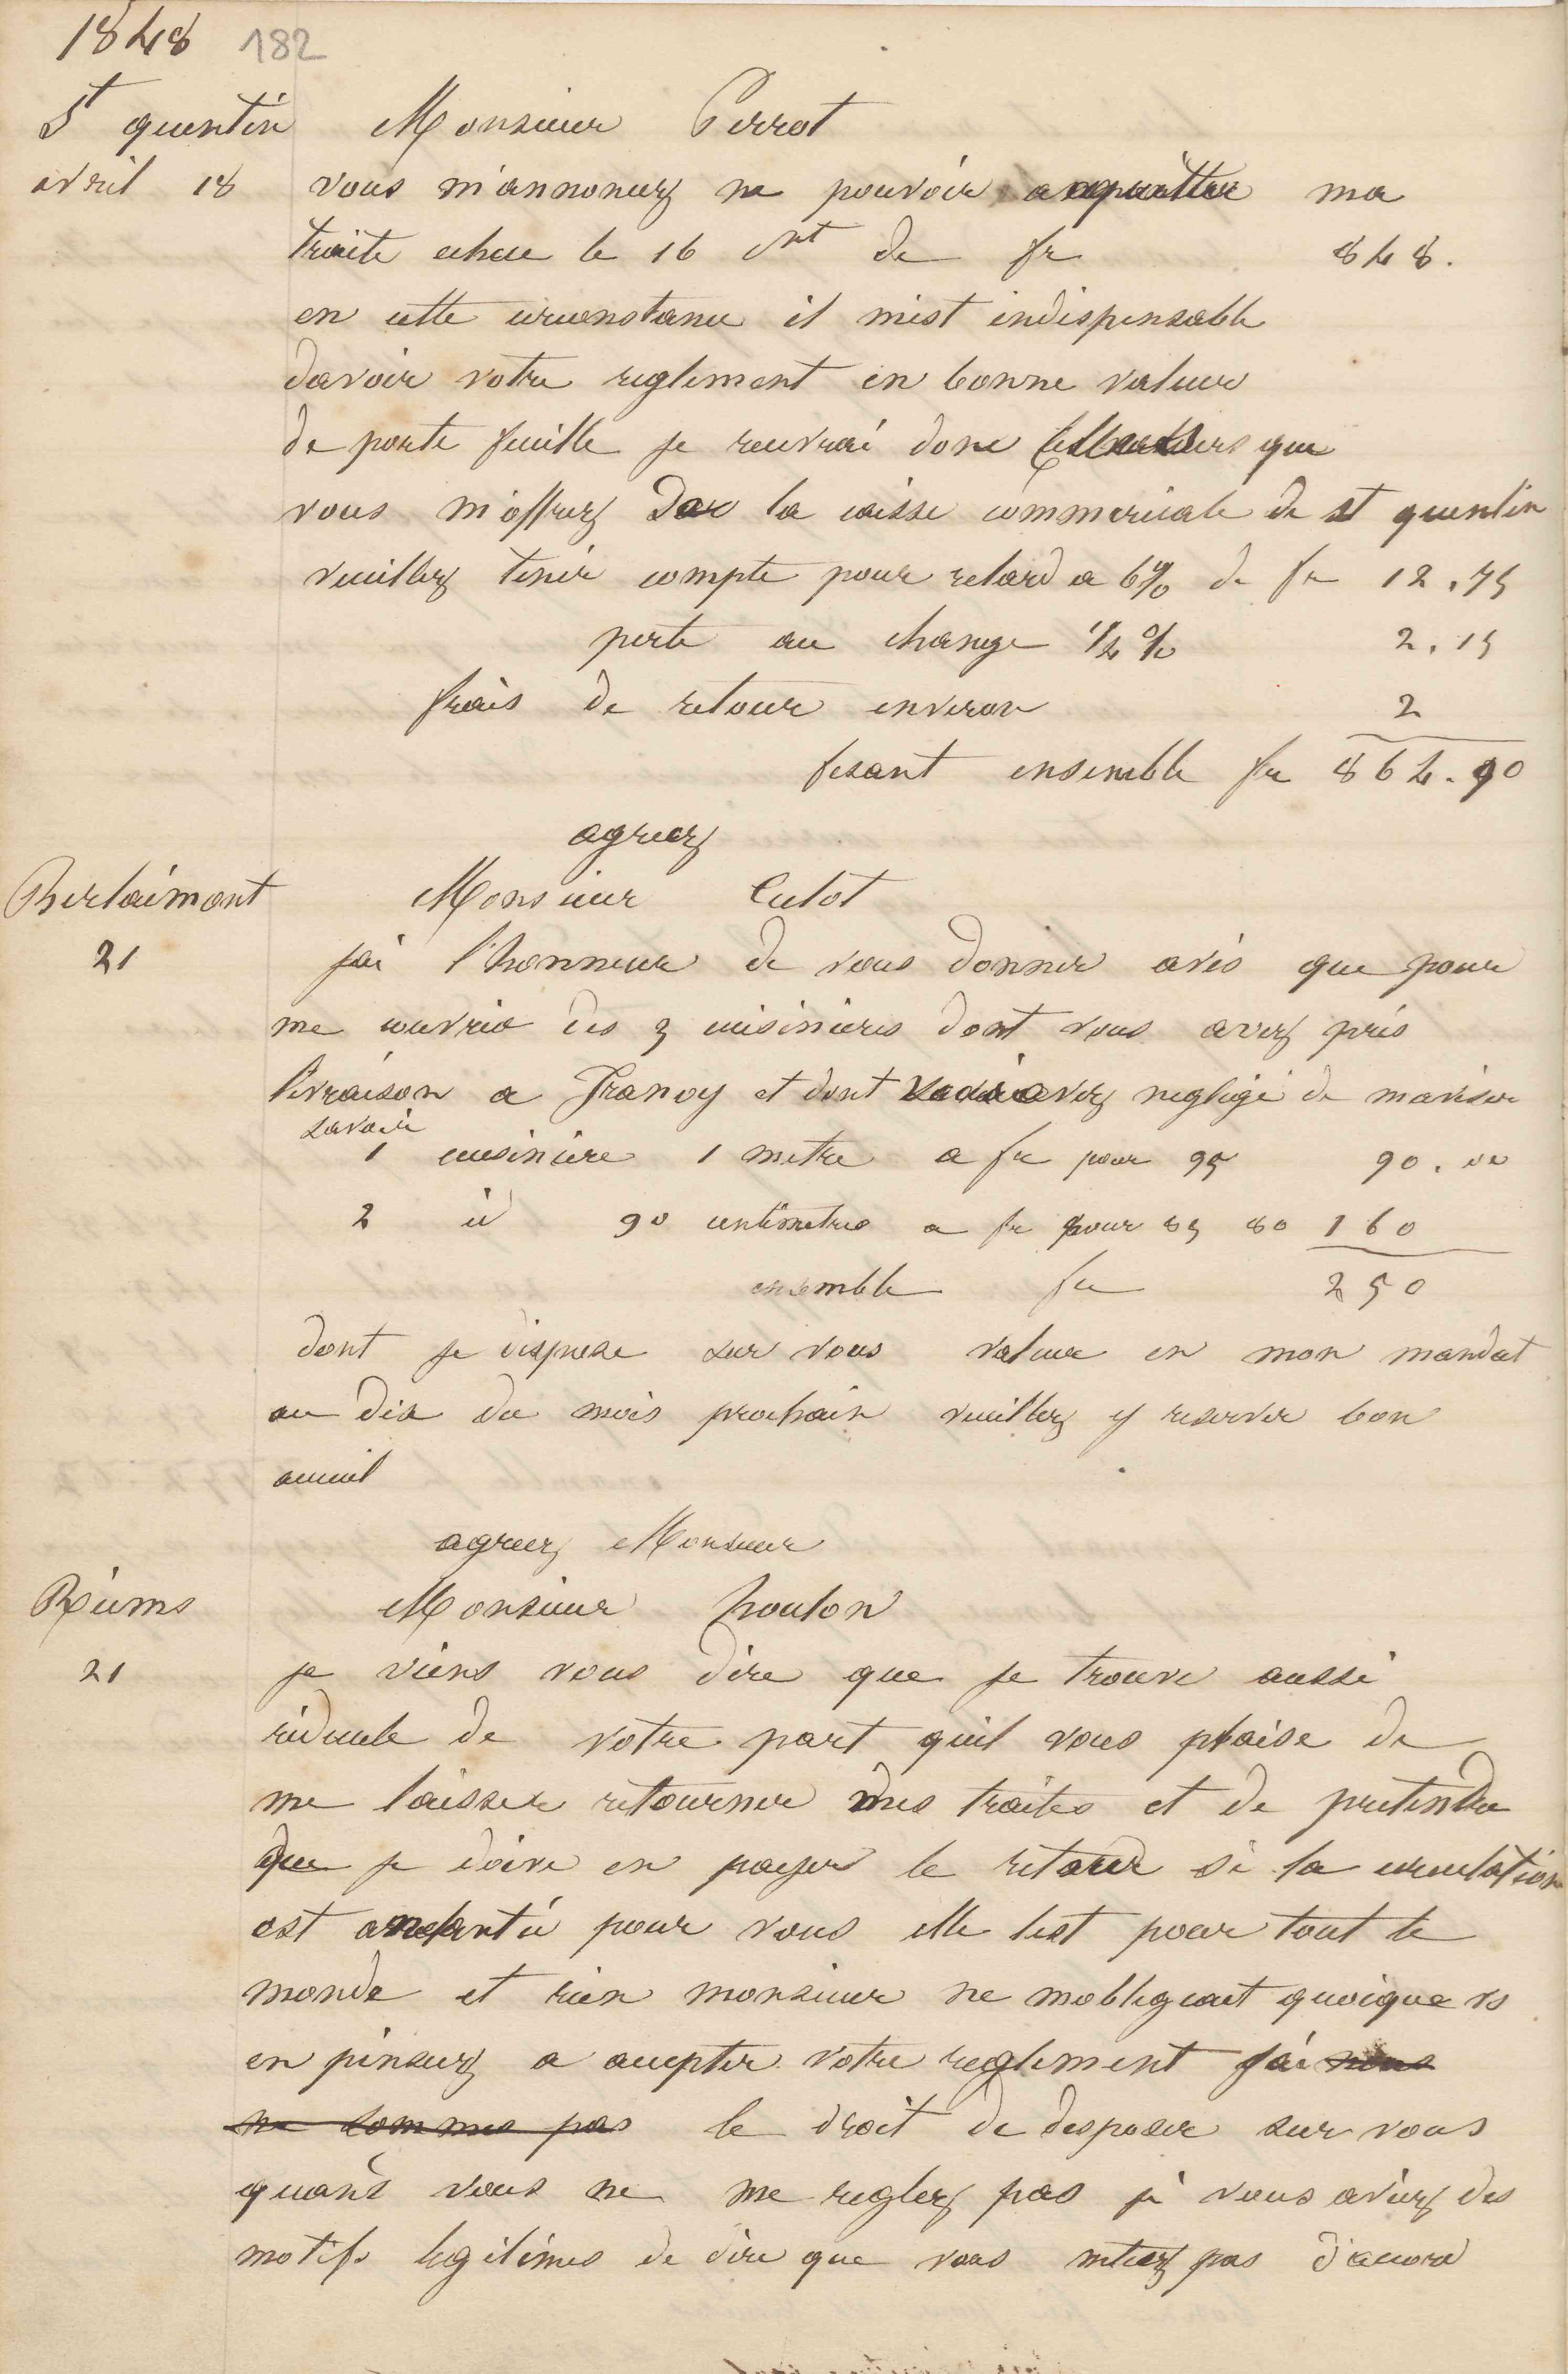 1848 182
St quentin Monsieur Perrot
avril 18 vous m'annoncez ne pouvoir acquitter ma
traite echue le 16 ct de fr 848.
en cette circonstance il m'est indispensable
davoir votre reglement en bonne valeur
de porte feuille je recevrai donc que
vous m'offrez la caisse commerciale de st quentin
veuillez tenir compte pour retard a 6% de fr 12.75
perte au change 1/4 % 2.15
frais de retour environ 2
fesant ensemble fr 864.90
agreez
Berlaimont Monsieur Culot
21 jai l'honneur de vous donner avis que pour
me couvrir des 3 cuisinieres dont vous avez pris
livraison a Franoy et dont vous avez negligé de maviser
savoir
1 cuisiniere 1 metre a fr pour 95 90.00
2 id 90 centimetres a fr pour 85 80 160
ensemble fr 250
dont je dispose sur vous valeur en mon mandat
au dix du mois prochain veuillez y reserver bon
accueil
agreez Monsieur
Reims Monsieur houlon
21 je viens vous dire que je trouve aussi
ridicule de votre part quil vous plaise de
me laisser retourner mes traites et de pretendre
que je doive en payer le retour si la circulation
est aneantie pour vous elle lest pour tout le
monde et rien monsieur ne mobligeait quoique vs
en pensiez a accepter votre reglement jai nous
ne sommes pas le droit de desposer sur vous
quand vous ne me reglez pas si vous aviez des
motifs legitimes de dire que vous netiez pas d'accord